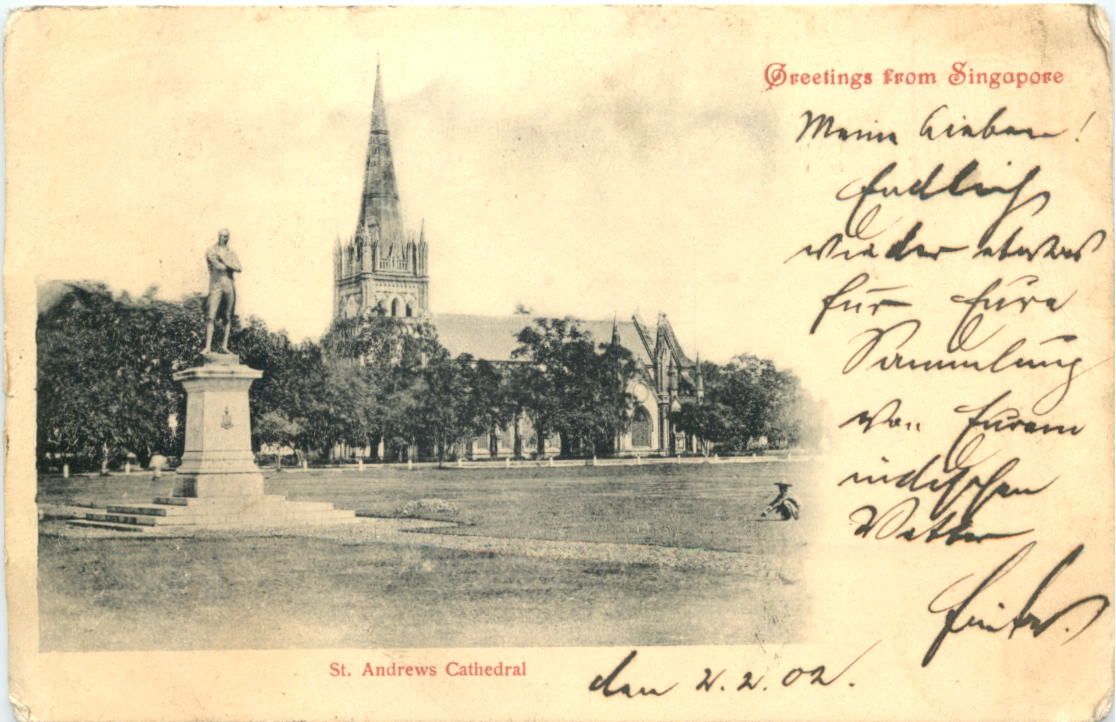 Greetings from Singapore
Meine Lieben!
Endlich
wieder etwas
für Eure
Sammlung
von Eurem
indischen
Vetter
Fritz.
St. Andrews Cathedral
den 2.2.02.